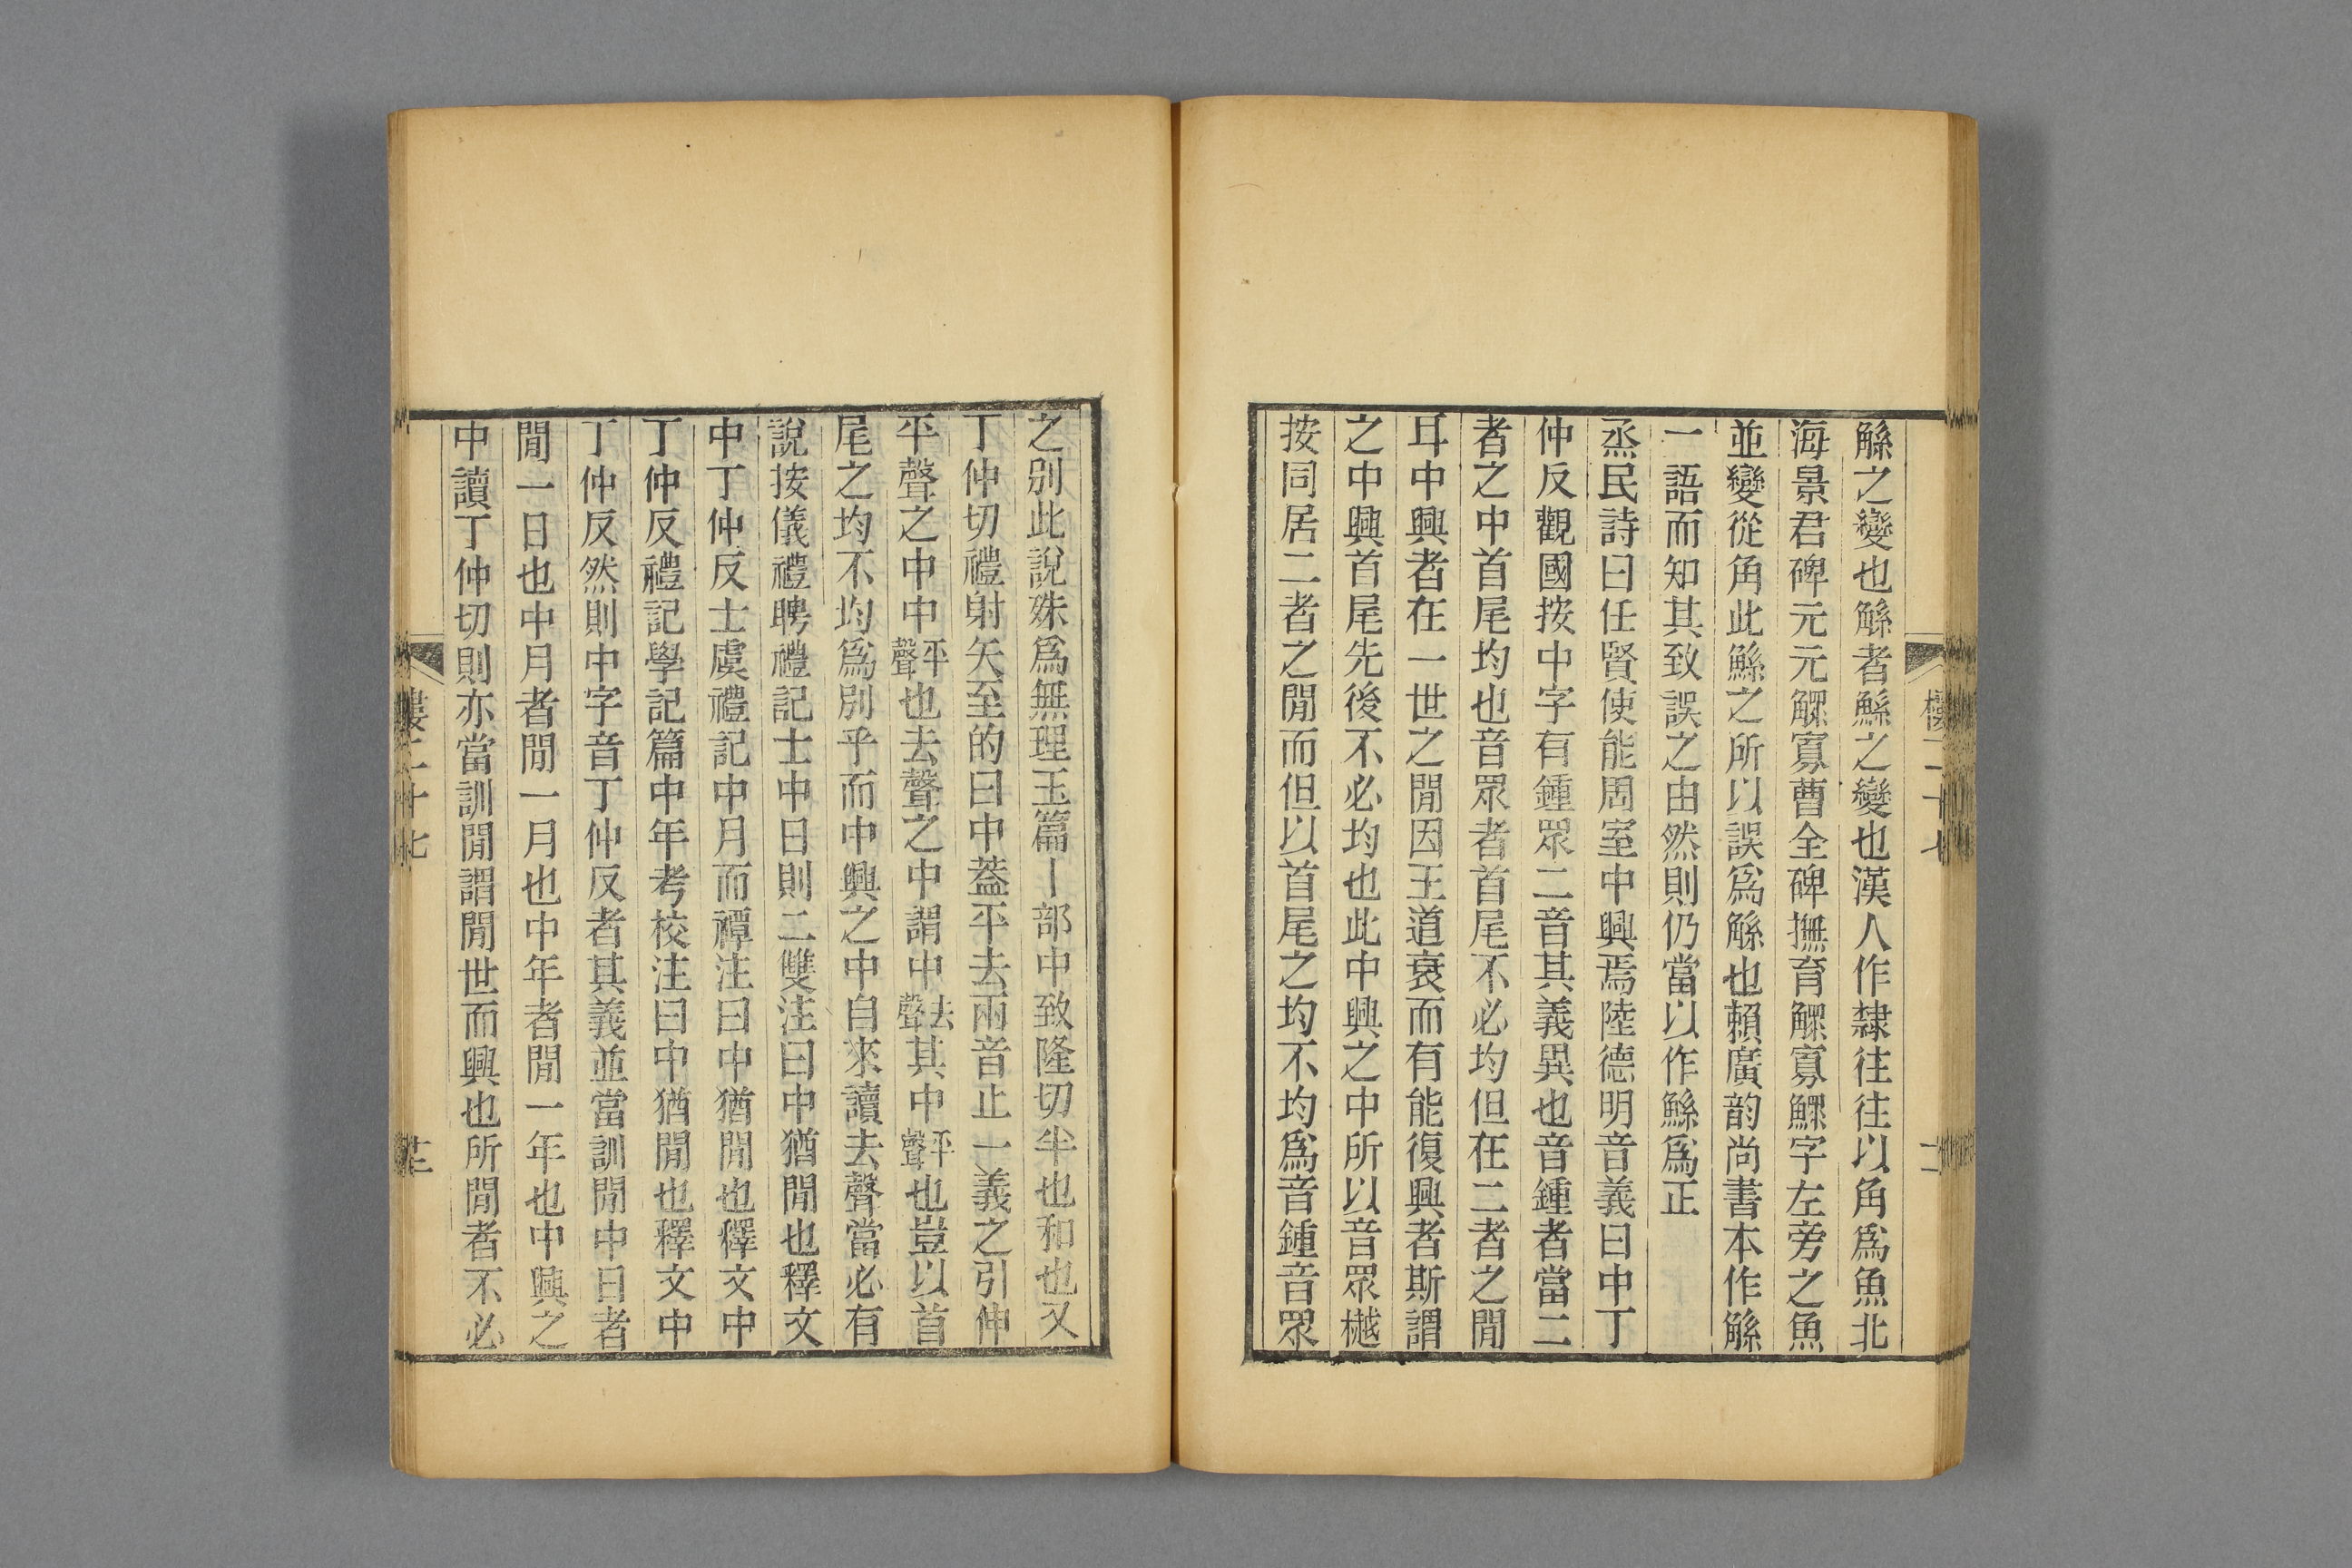 鯀之變也鯀者鯀之變也漢人作隸往往以角爲魚北
海景君碑元元鰥寡曹全碑撫育鰥寡鰥字左旁之魚
並變從角此鯀之所以誤爲鯀也賴廣韵尚書本作鯀
一語而知其致誤之由然則仍當以作鯀爲正
烝民詩曰任賢使能周室中興焉陸德明音義曰中丁
仲反觀國按中字有鍾眾二音其義異也音鍾者當二
者之中首尾均也音眾者首尾不必均但在二者之閒
耳中興者在一世之閒因王道衰而有能復興者斯謂
之中興首尾先後不必均也此中興之中所以音眾樾
按同居二者之閒而但以首尾之均不均爲音鍾音眾
之别此說殊爲無理玉篇丨部中致隆切半也和也又
丁仲切禮射矢至的曰中蓋平去兩音止一義之引伸
平聲之中中平聲也去聲之中謂中去聲其中平聲也豈以首
尾之均不均爲別乎而中興之中自來讀去聲當必有
說按儀禮聘禮記士中日則二雙注曰中猶閒也釋文
中丁仲反士虞禮記中月而禫注曰中猶閒也釋文中
丁仲反禮記學記篇中年考校注曰中猶閒也釋文中
丁仲反然則中字音丁仲反者其義並當訓閒中日者
閒一日也中月者閒一月也中年者閒一年也中興之
中讀丁仲切則亦當訓閒謂閒世而興也所閒者不必